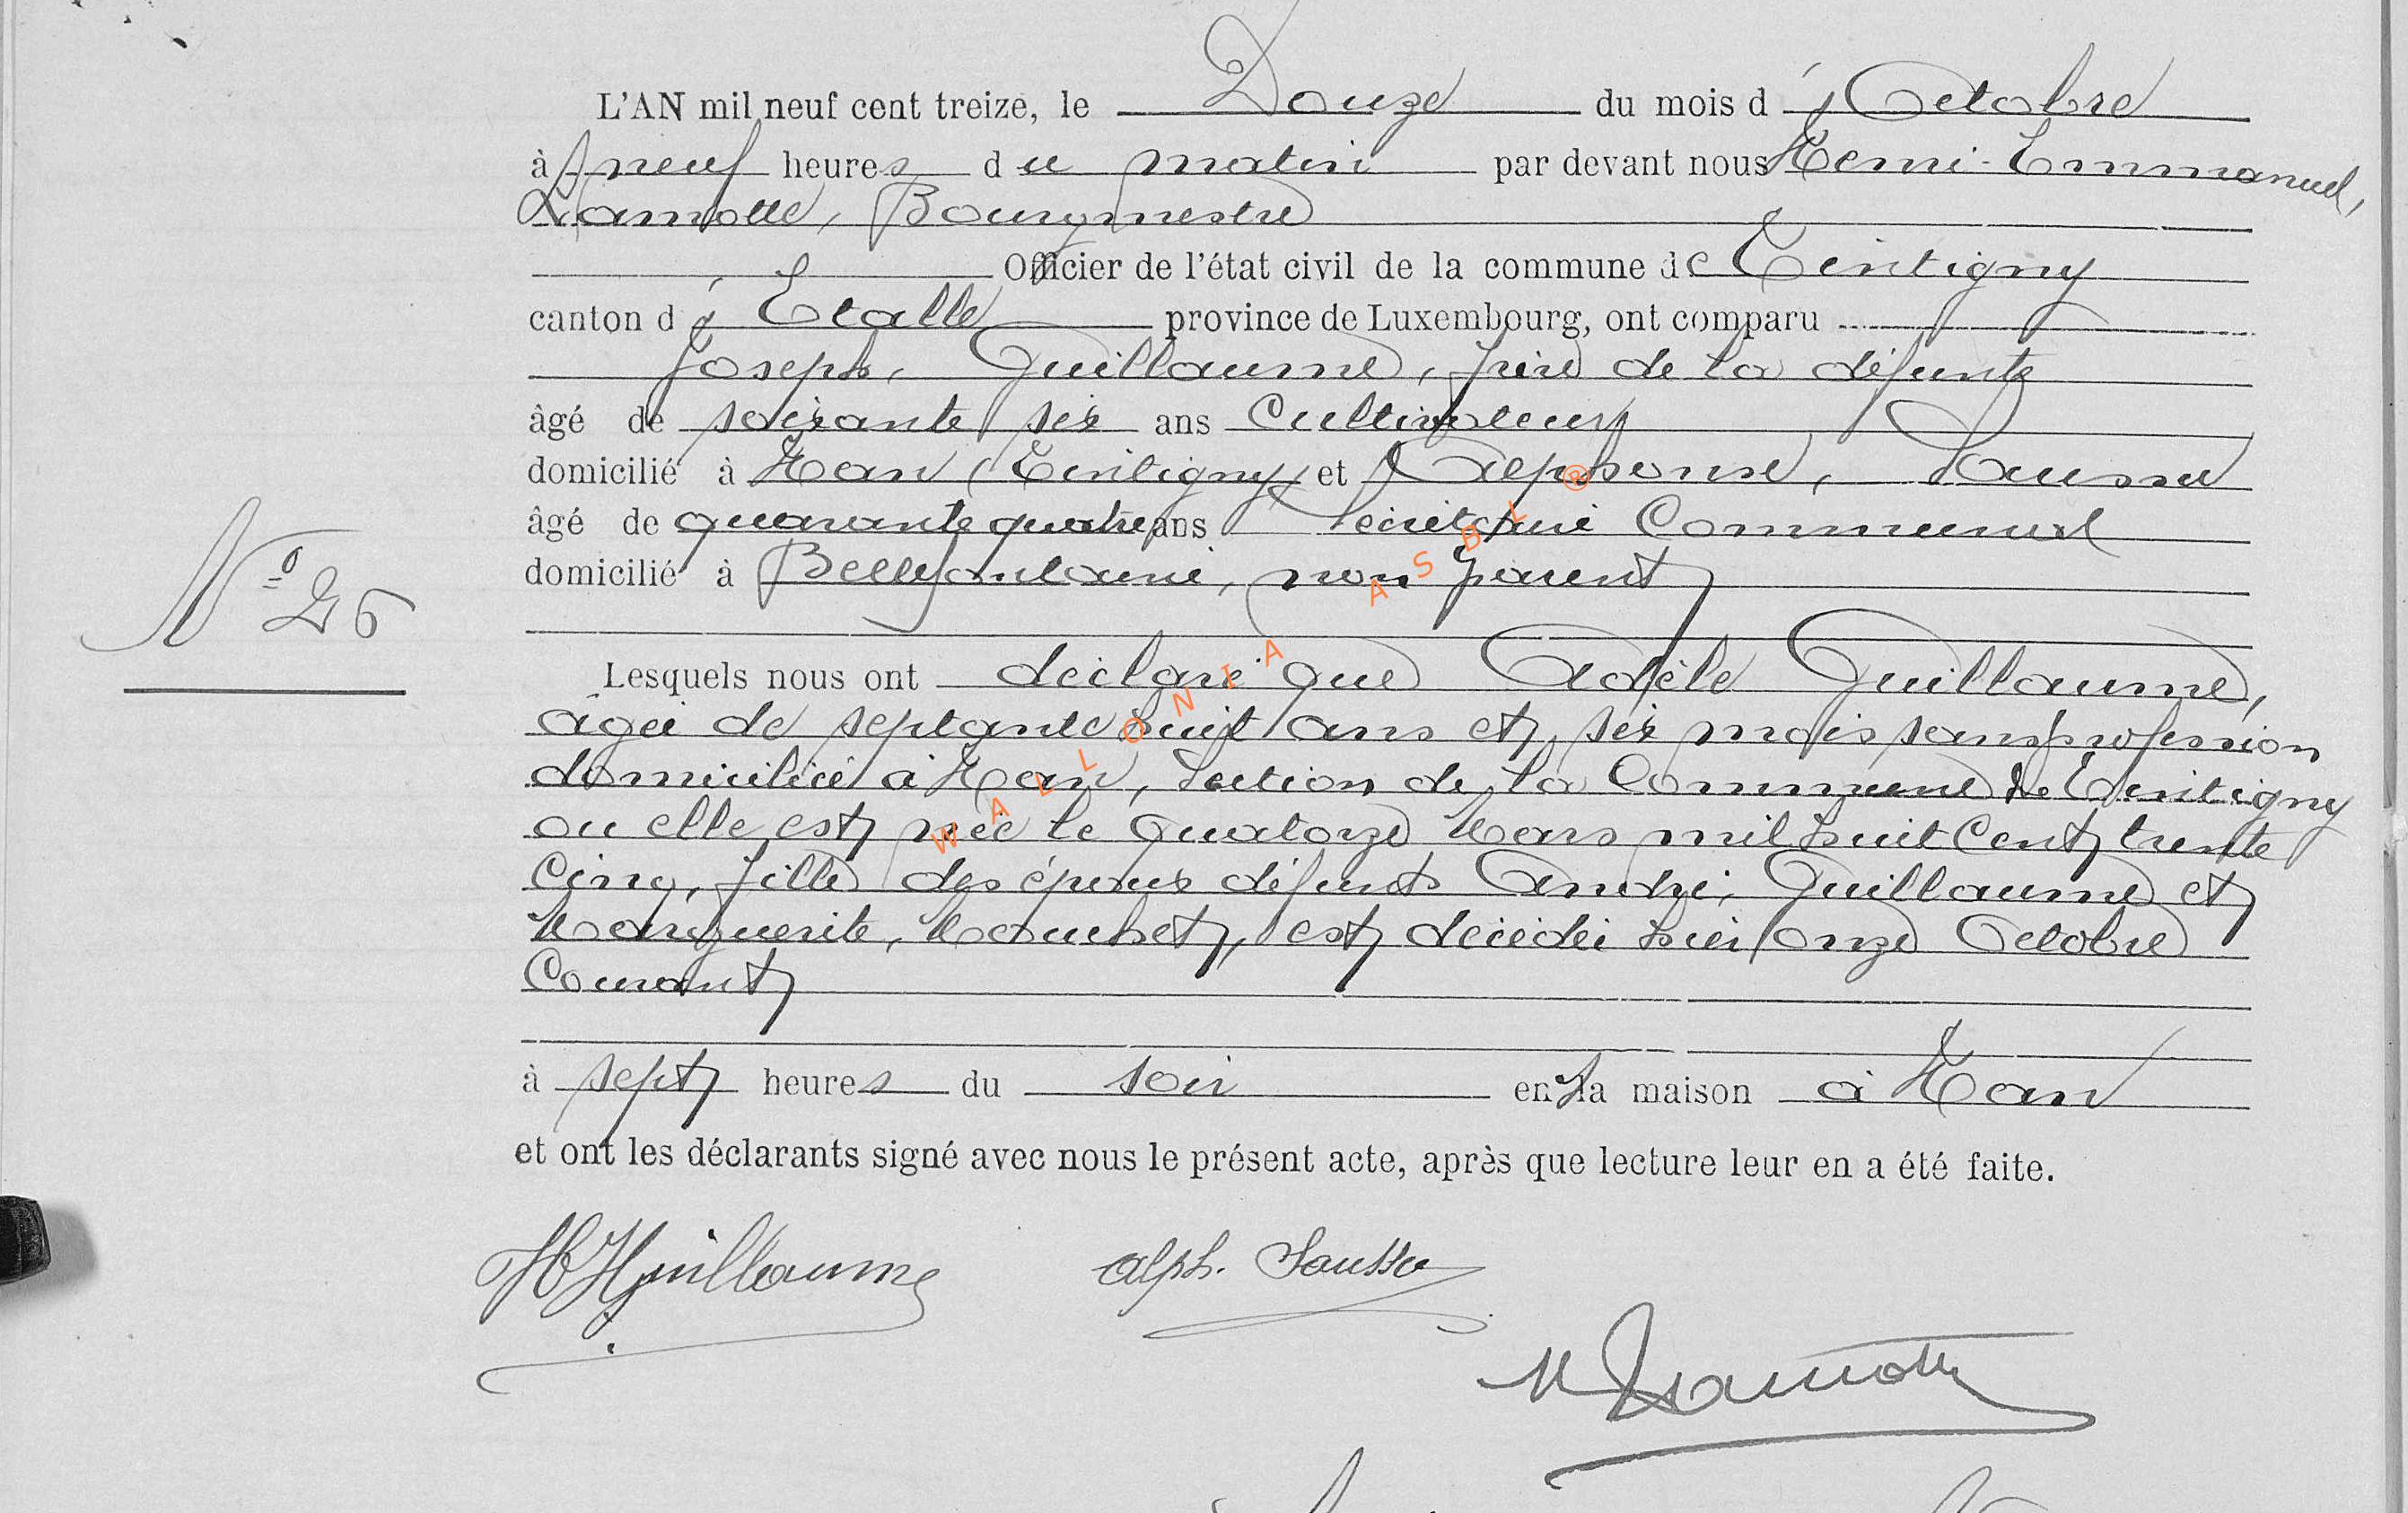 L'AN mil neuf cent treize, le Douze du mois d'Octobre
à neuf heures du matin par devant nous Henri-Emmanuel,
Lamotte, Bourgmestre
Officier de l'état civil de la commune de Tintigny
canton d'Etalle province de Luxembourg, ont comparu
Joseph, Guillaume, frère de la défunte
âgé de soixante six ans Cultivateur
domicilié à Han (Tintigny) et Alphonse, Sausse
âgé de quarante quatre ans Secrétaire Communal
domicilié à Bellefontaine, non parent
N° 26
Lesquels nous ont déclaré que Adèle Guillaume,
âgée de septante huit ans et six mois sans profession
domiciliée à Han, Section de la Commune de Tintigny
ou elle est née le quatorze Mars mil huit Cent trente
Cinq, fille des époux défunts André, Guillaume et
Marguerite, Mouchet, est décédée hier onze Octobre
Courant
à sept heures du soir en sa maison à Han
et ont les déclarants signé avec nous le présent acte, après que lecture leur en a été faite.
Guillaume alph. Sausse
Lamotte
WALLONIA ASBL ®